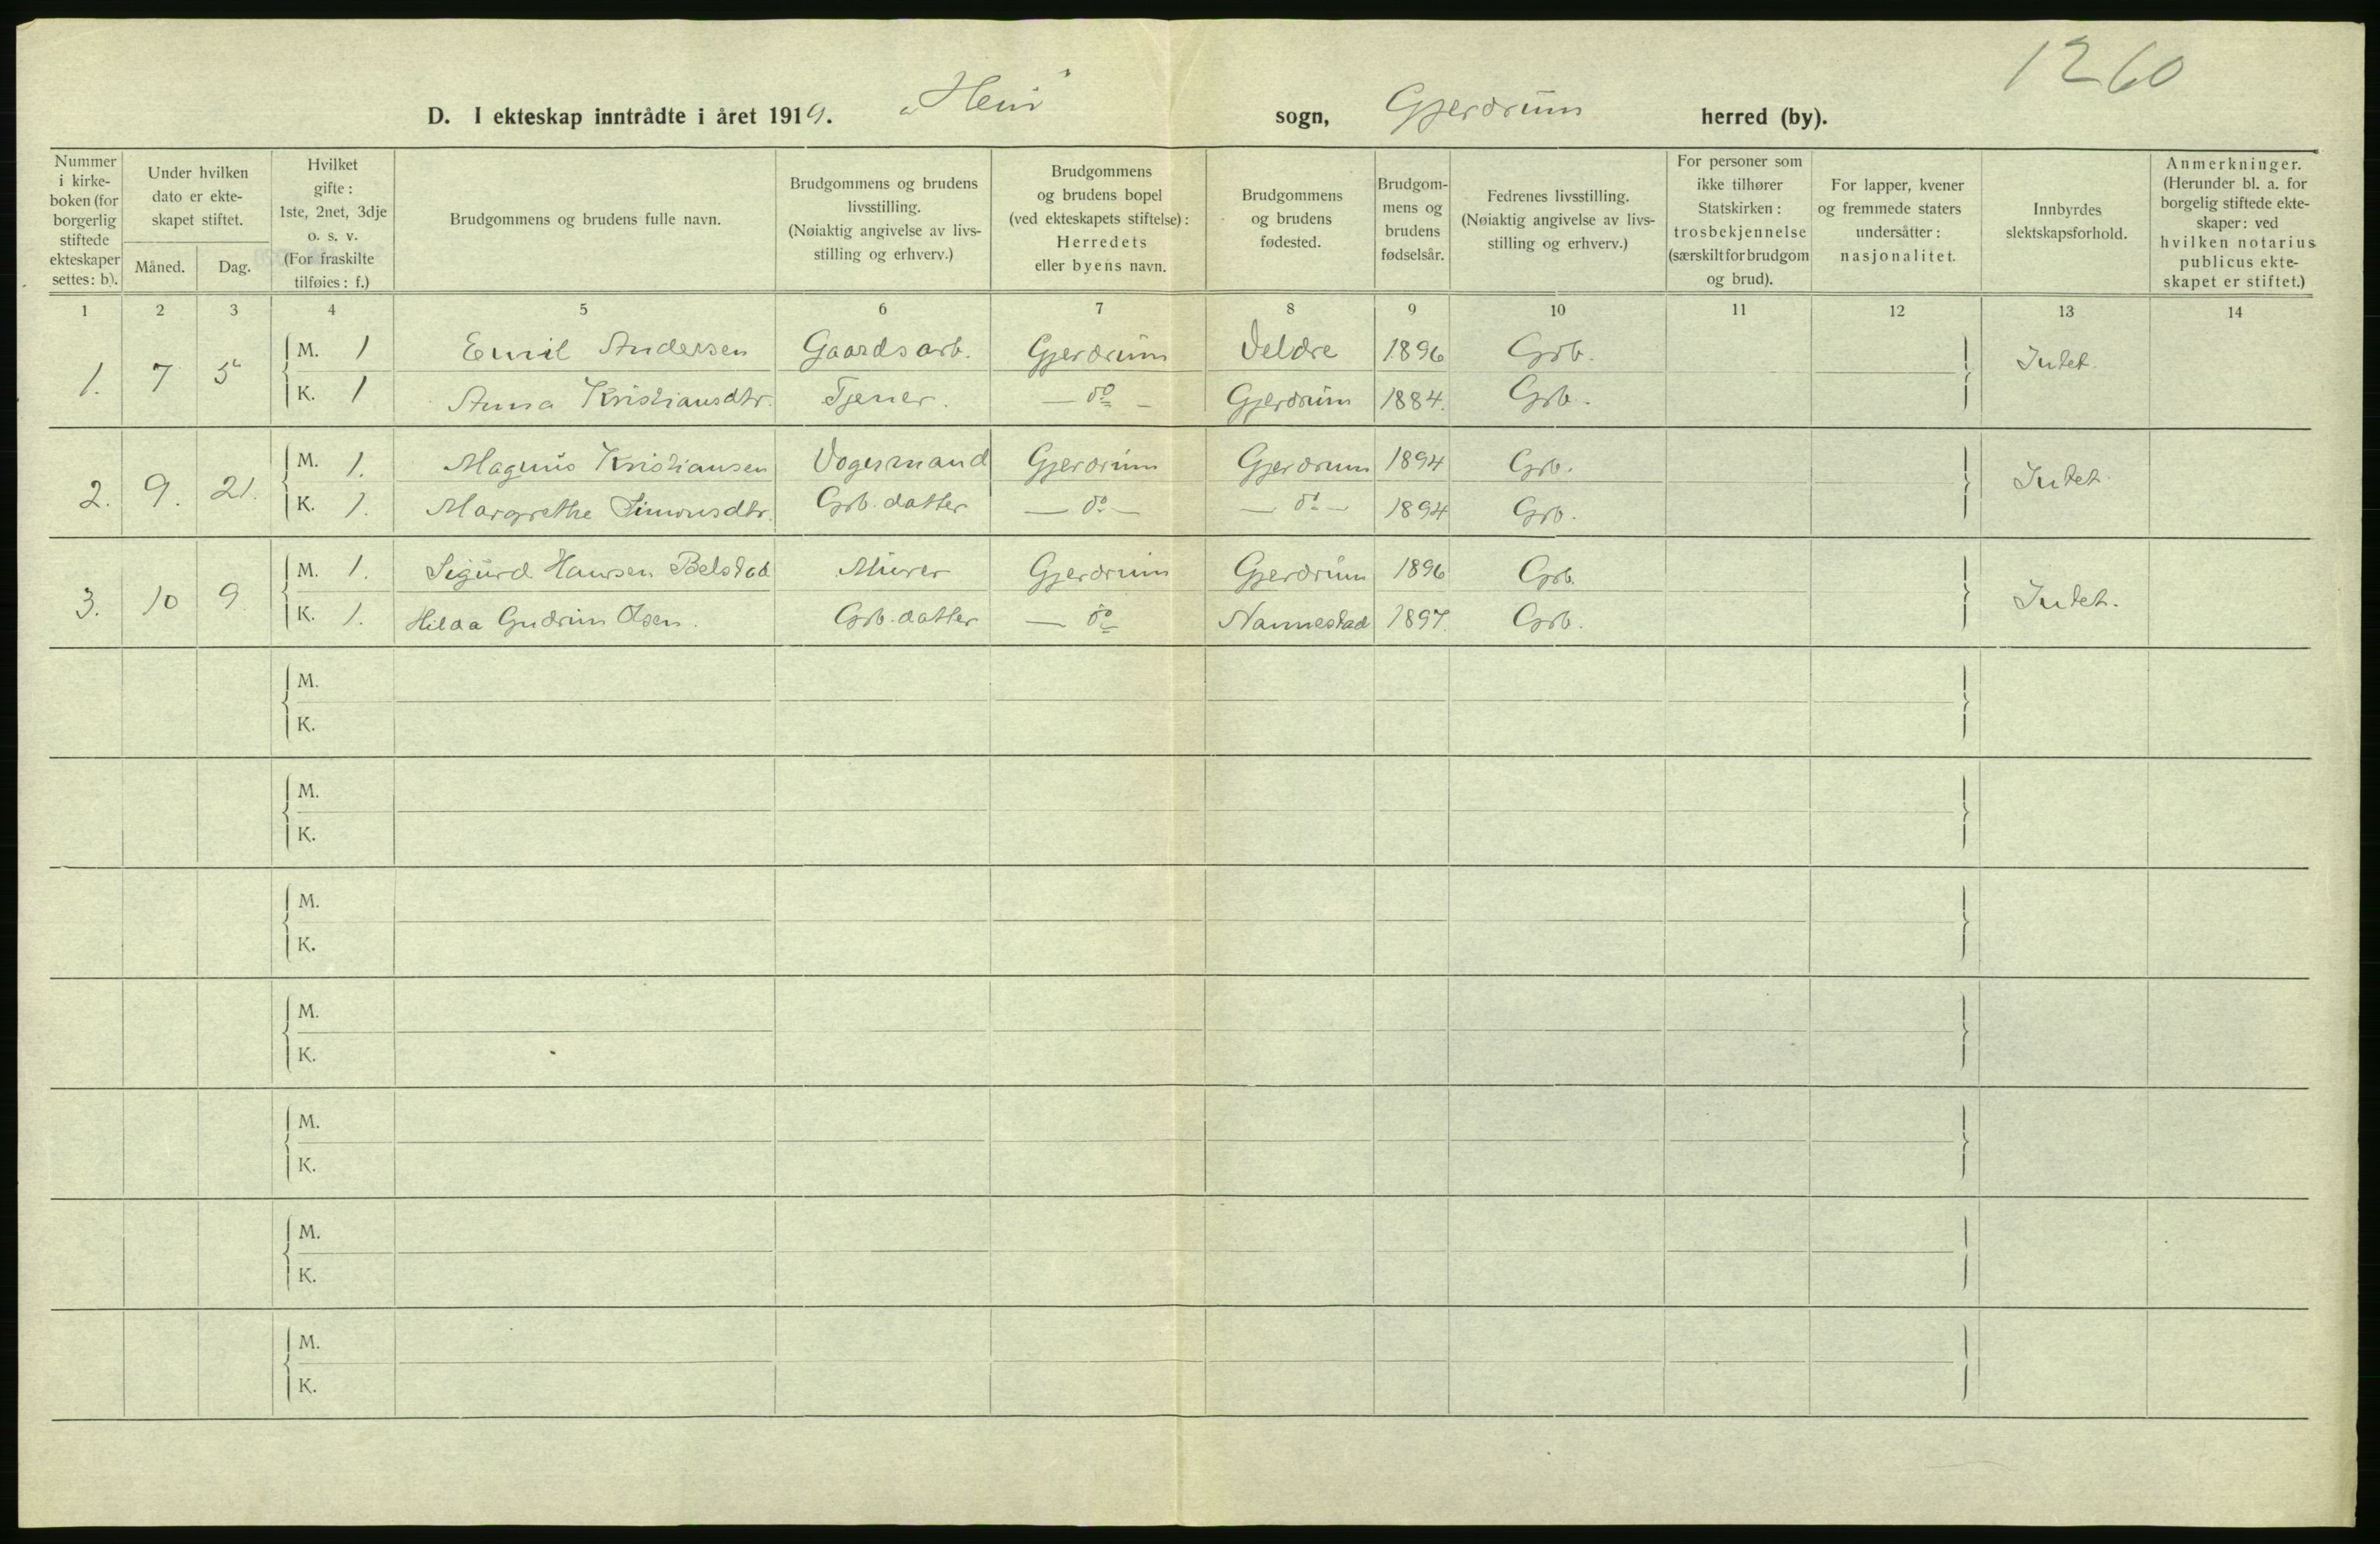 1260
D. I ekteskap inntrådte i året 1919. "Heni" sogn, Gjerdrum herred (by).
Nummer i kirke-boken (for borgerlig stiftede ekteskaper settes: b).
Under hvilken dato er ekte-skapet stiftet.
Måned. Dag.
Hvilket gifte: 1ste, 2net, 3dje o. s. v. (For fraskilte tilføies: f.)
Brudgommens og brudens fulle navn.
Brudgommens og brudens livsstilling. (Nøiaktig angivelse av livs-stilling og erhverv.)
Brudgommens og brudens bopel (ved ekteskapets stiftelse): Herredets eller byens navn.
Brudgommens og brudens fødested.
Brudgom-mens og brudens fødselsår.
Fedrenes livsstilling. (Nøiaktig angivelse av livs-stilling og erhverv.)
For personer som ikke tilhører Statskirken: trosbekjennelse (særskilt for brudgom og brud).
For lapper, kvener og fremmede staters undersåtter: nasjonalitet.
Innbyrdes slektskapsforhold.
Anmerkninger. (Herunder bl. a. for borgelig stiftede ekte-skaper: ved hvilken notarius publicus ekte-skapet er stiftet.)
1 2 3 4 5 6 7 8 9 10 11 12 13 14
1. 7 5 M. 1 Emil Andersen Gaardsarb. Gjerdrum Veldre 1896 Grb. Intet.
K. 1 Anna Kristiansdtr. Tjener. — do — Gjerdrum 1884. Grb.
2. 9. 21. M. 1. Magnus Kristiansen Vognmand Gjerdrum Gjerdrum 1894 Grb. Intet.
K. 1. Margrethe Simensdtr. Grb. datter — do — — do — 1894 Grb.
3. 10 9. M. 1. Sigurd Hansen Belstad Murer Gjerdrum Gjerdrum 1896 Grb. Intet.
K. 1. Hilda Gudrun Olsen. Grb. datter — do Nannestad 1897. Grb.
M.
K.
M.
K.
M.
K.
M.
K.
M.
K.
M.
K.
M.
K.